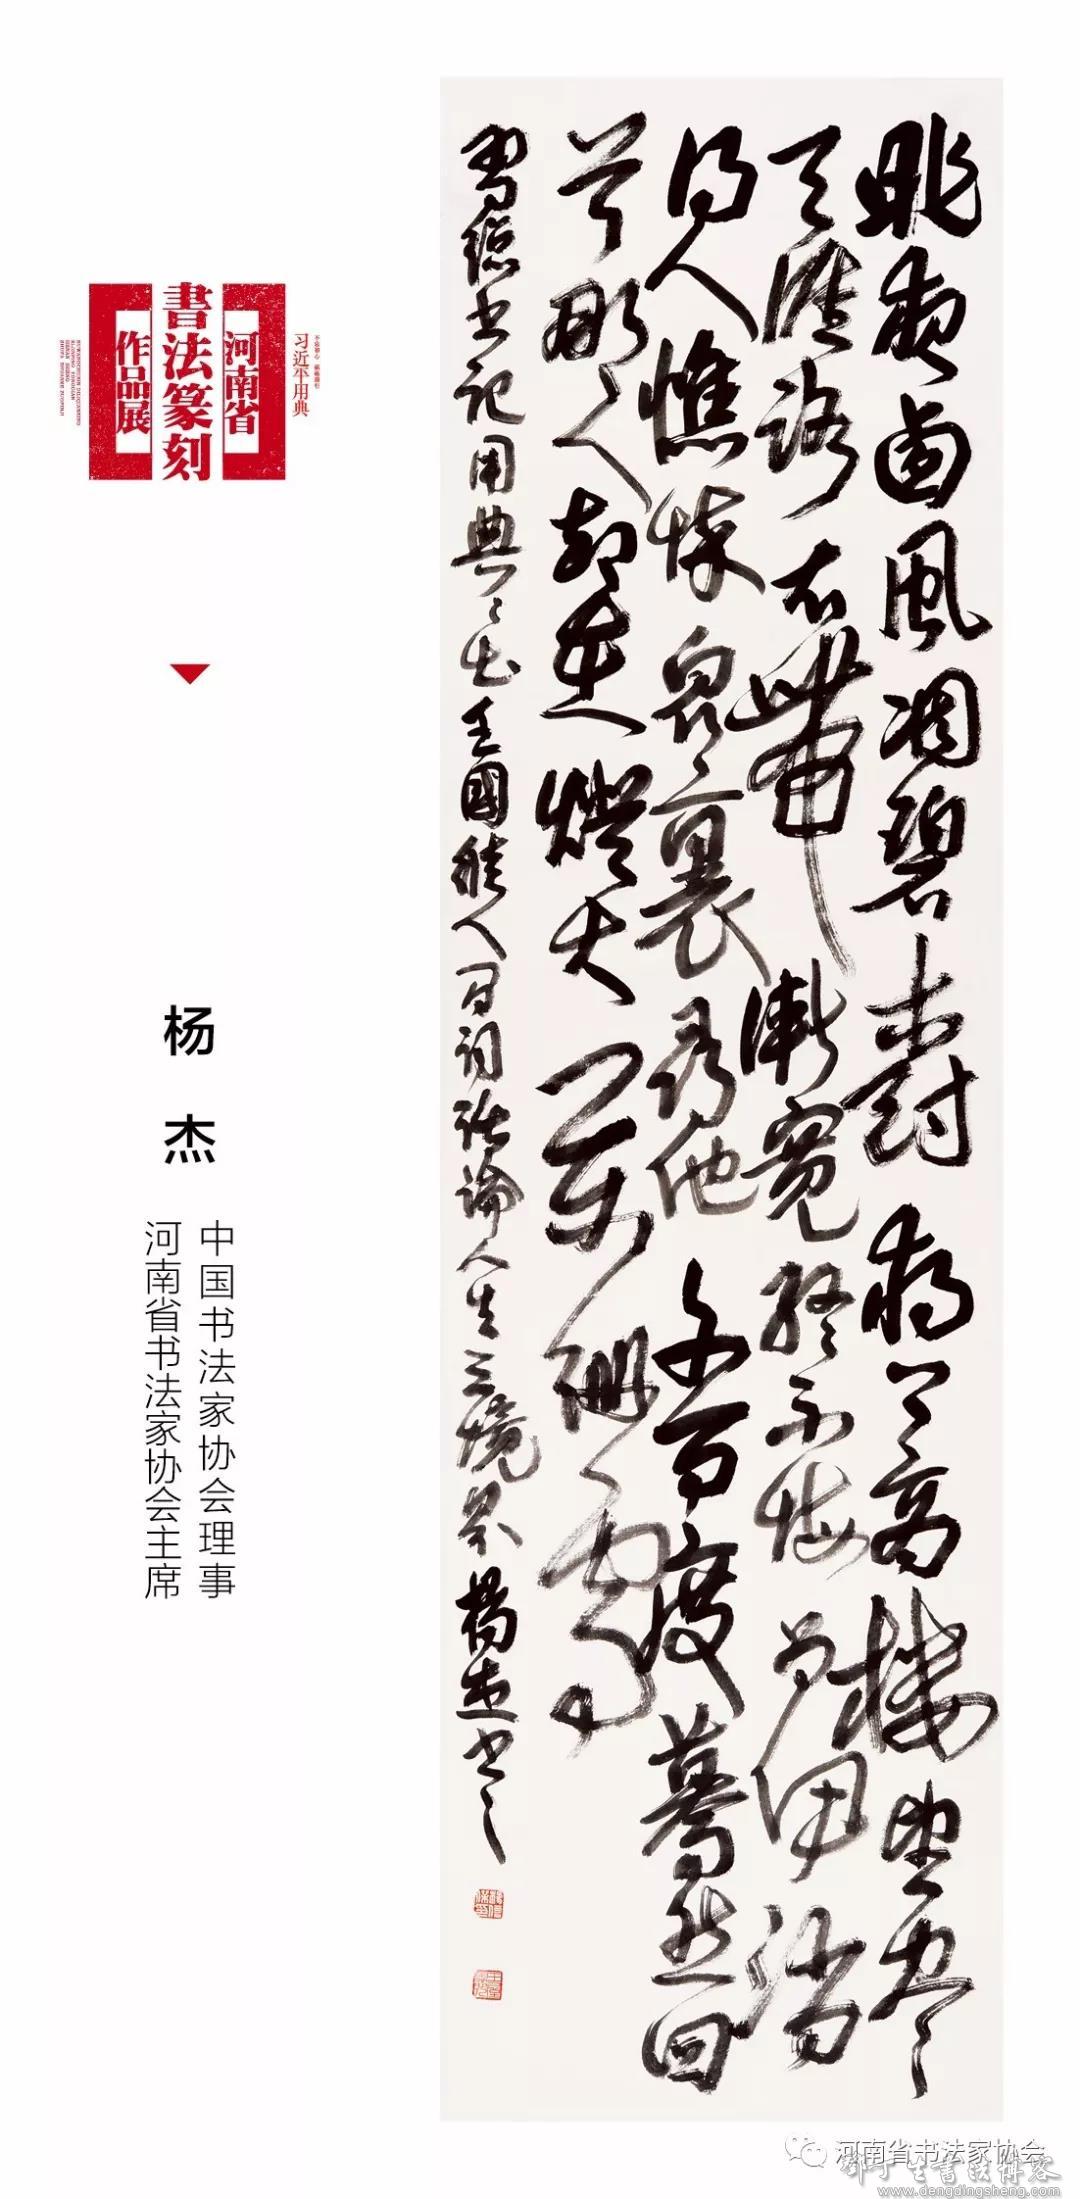 不忘初心 砥砺前行
习近平用典
河南省
書法篆刻
作品展
杨杰
中国书法家协会理事
河南省书法家协会主席
昨夜西風凋碧樹獨上高樓望盡
天涯路衣帶漸寬終不悔為伊消
得人憔悴衆裏尋他千百度驀然回
首那人却在燈火闌珊處
習總書記用典々出王國維人間詞話論人生三境界楊杰書之
河南省书法家协会
邓丁生書法博客
www.dengdingsheng.com